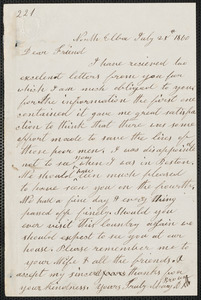 221
North Elba July 20th 1860
Dear Friend
I have received two
excelent letters from you for
which I am much obliged to you
for the information the first one
contained it gave me great satisfa
ction to think that there was some
movement made to save the lives of
those poor men. I was disappointed
not to see you when I was in Boston.
We should have been much pleased
to have seen you on the fourth.
We had a fine day & every thing
passed of finely. Should you
ever visit this Country again we
should expect to see you at our
house. Please remember me to
your Wife & all the friends. &
accept my sincere thanks for
your kindness Yours Truly